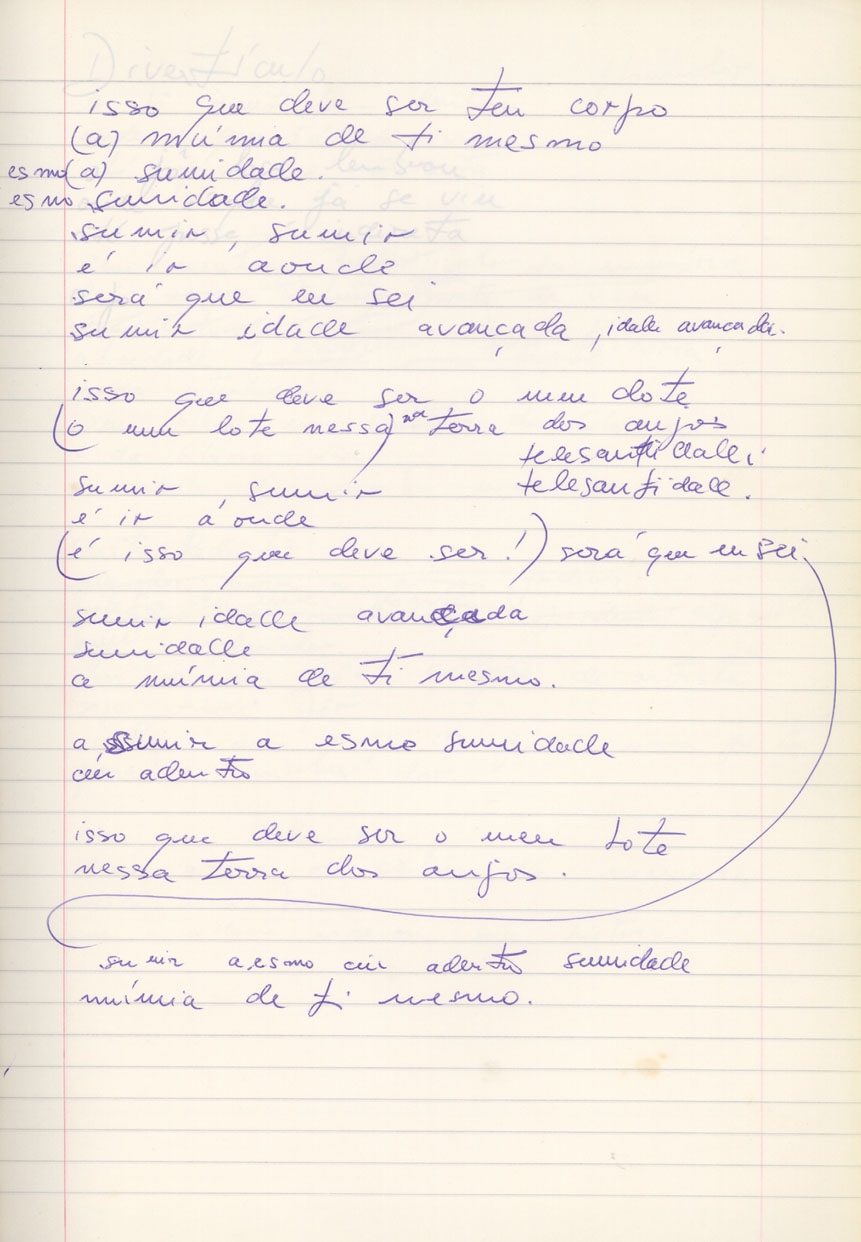 Divertículo
isso que deve ser teu corpo
(a) múmia de ti mesmo
esmo (a) sumidade.
esmo sumidade.
sumir, sumir
é ir aonde
será que eu sei
sumir idade avançada, idade avançada.
isso que deve ser o meu dote
(o meu lote nessa) na terra dos anjos
telesantidade,
telesantidade.
sumir, sumir
é ir aonde
(é isso que deve ser!) será que eu sei.
sumir idade avançada
sumidade
a múmia de ti mesmo.
a sumir a esmo sumidade
céu adentro
isso que deve ser o meu lote
nessa terra dos anjos.
sumir a esmo céu adentro sumidade
múmia de ti mesmo.